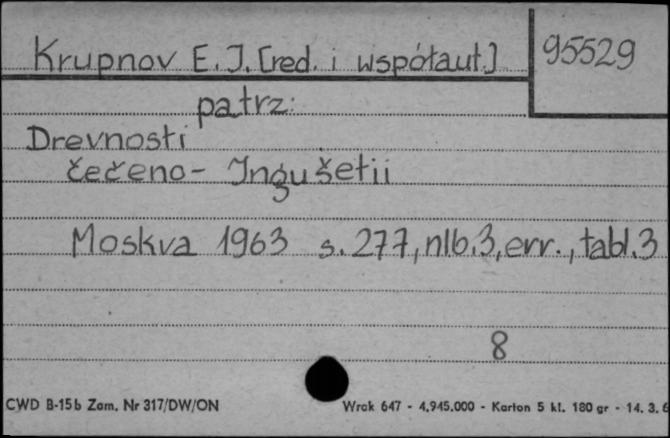 Krupnov E. J. [red. i współaut.]
95529
patrz:
Drevnosti
čečeno - Jngušetii
Moskva 1963 s. 277, nlb. 3, err., tabl. 3
8
CWD B-15b Zam. Nr 317/DW/ON
Wrak 647 - 4.945.000 - Karton 5 kl. 180 gr - 14. 3. 6